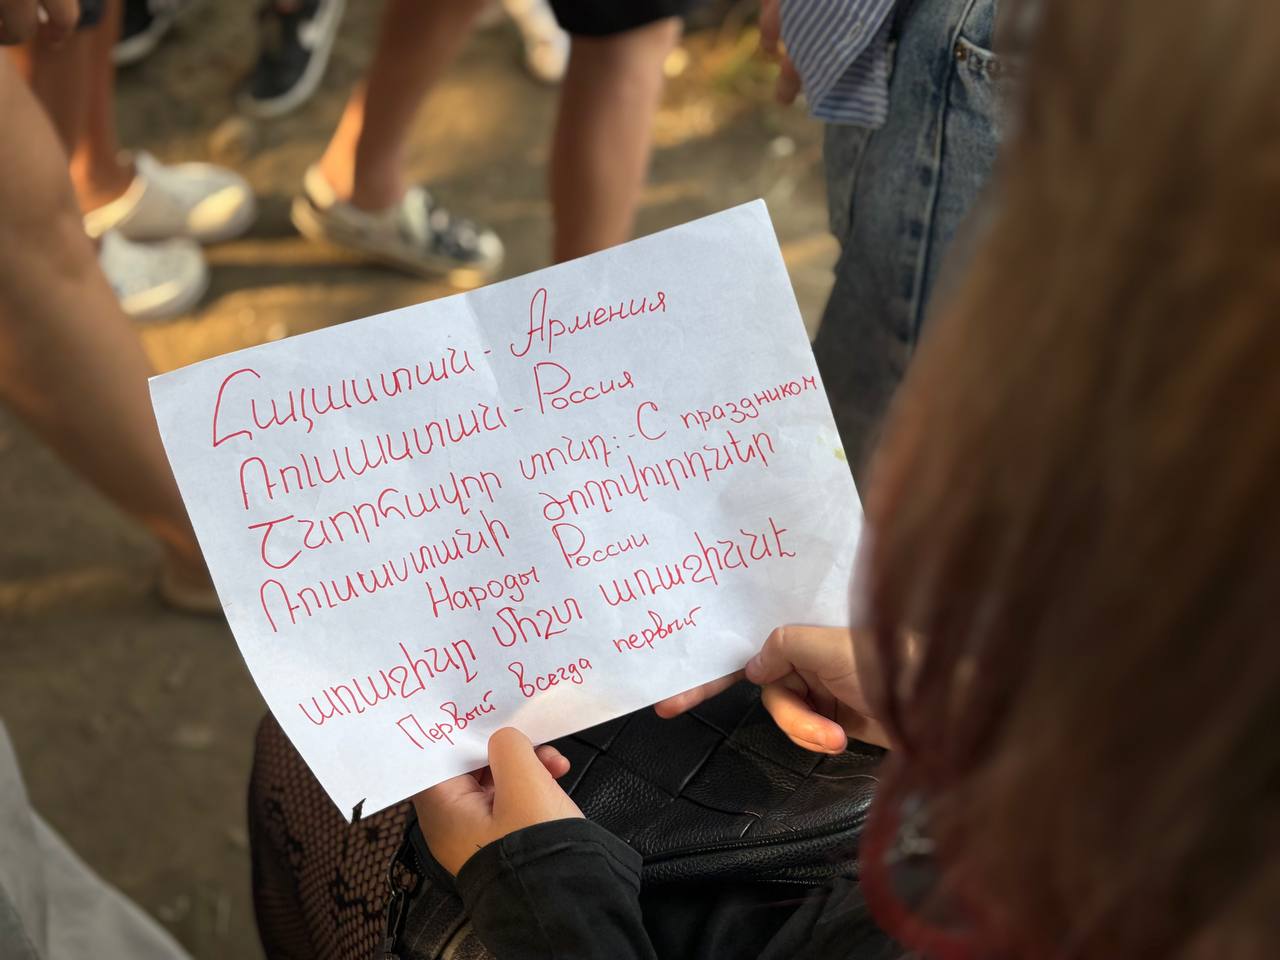 Հայաստան - Армения
Ռուսաստան - Россия
Շնորհավոր տոնդ: - С праздником
Ռուսաստանի ժողովուրդներ
Народы России
առաջինը միշտ առաջինն է
Первый всегда первый